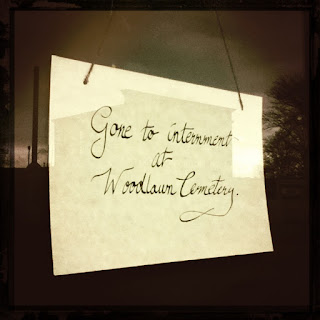 Gone to internment
at
Woodlawn Cemetery.